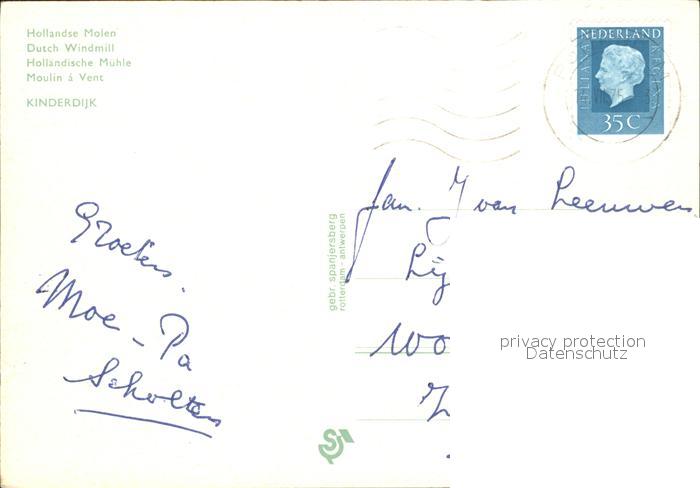 Hollandse Molen
Dutch Windmill
Holländische Mühle
Moulin á Vent
KINDERDIJK
NEDERLAND
JULIANA REGINA
35C
75
Fam. J van Leeuwen
gebr. spanjersberg
rotterdam - antwerpen
Groeten.
Moe - Pa
Scholten
privacy protection
Datenschutz